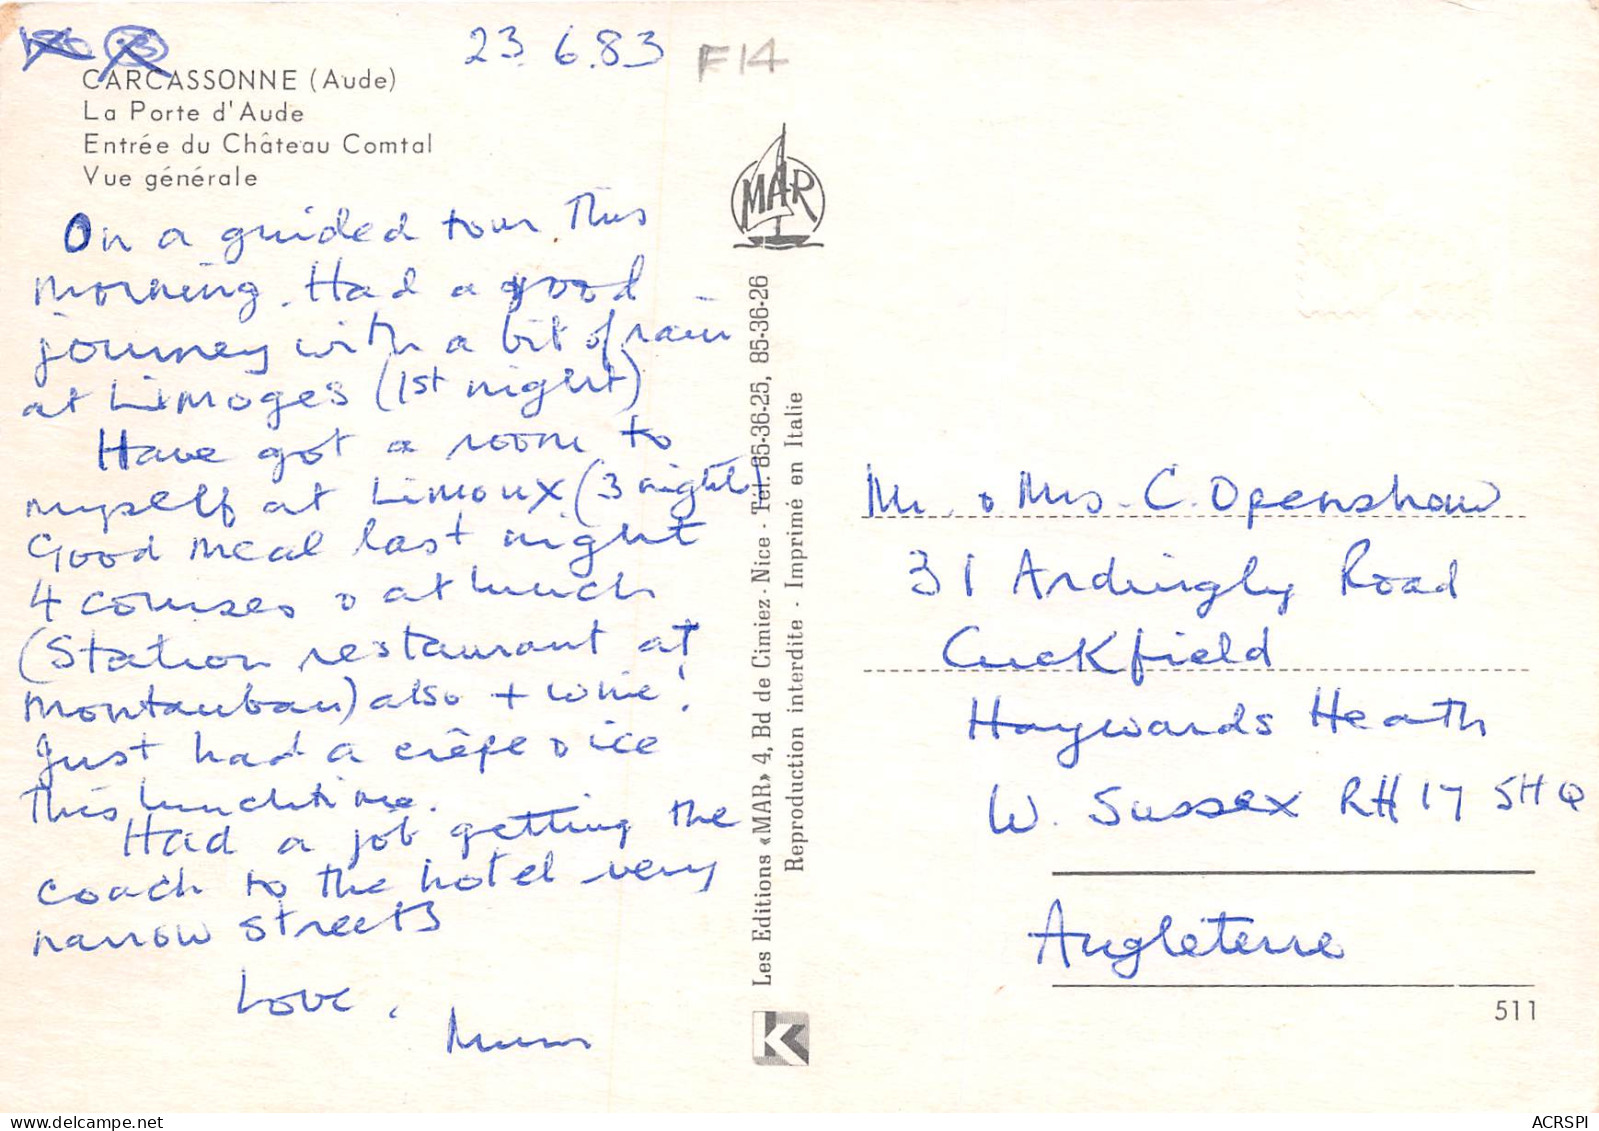 23.6.83
F14
CARCASSONNE (Aude)
La Porte d'Aude
Entrée du Château Comtal
Vue générale
On a guided tour this
morning. Had a good
journey with a bit of rain
at Limoges (1st night)
Have got a room to
myself at Limoux (3 nights)
Good meal last night
4 courses & at lunch
(Station restaurant at
Montauban) also + wine!
Just had a crêpe & ice
this lunchtime.
Had a job getting the
coach to the hotel very
narrow streets
Love,
Mum
MAR
Les Editions «MAR» 4, Bd de Cimiez - Nice - Tél. 85-36-25, 85-36-26
Reproduction interdite - Imprimé en Italie
K
Mr. & Mrs. C. Openshaw
31 Ardingly Road
Cuckfield
Haywards Heath
W. Sussex RH17 5HQ
Angleterre
511
ACRSPI